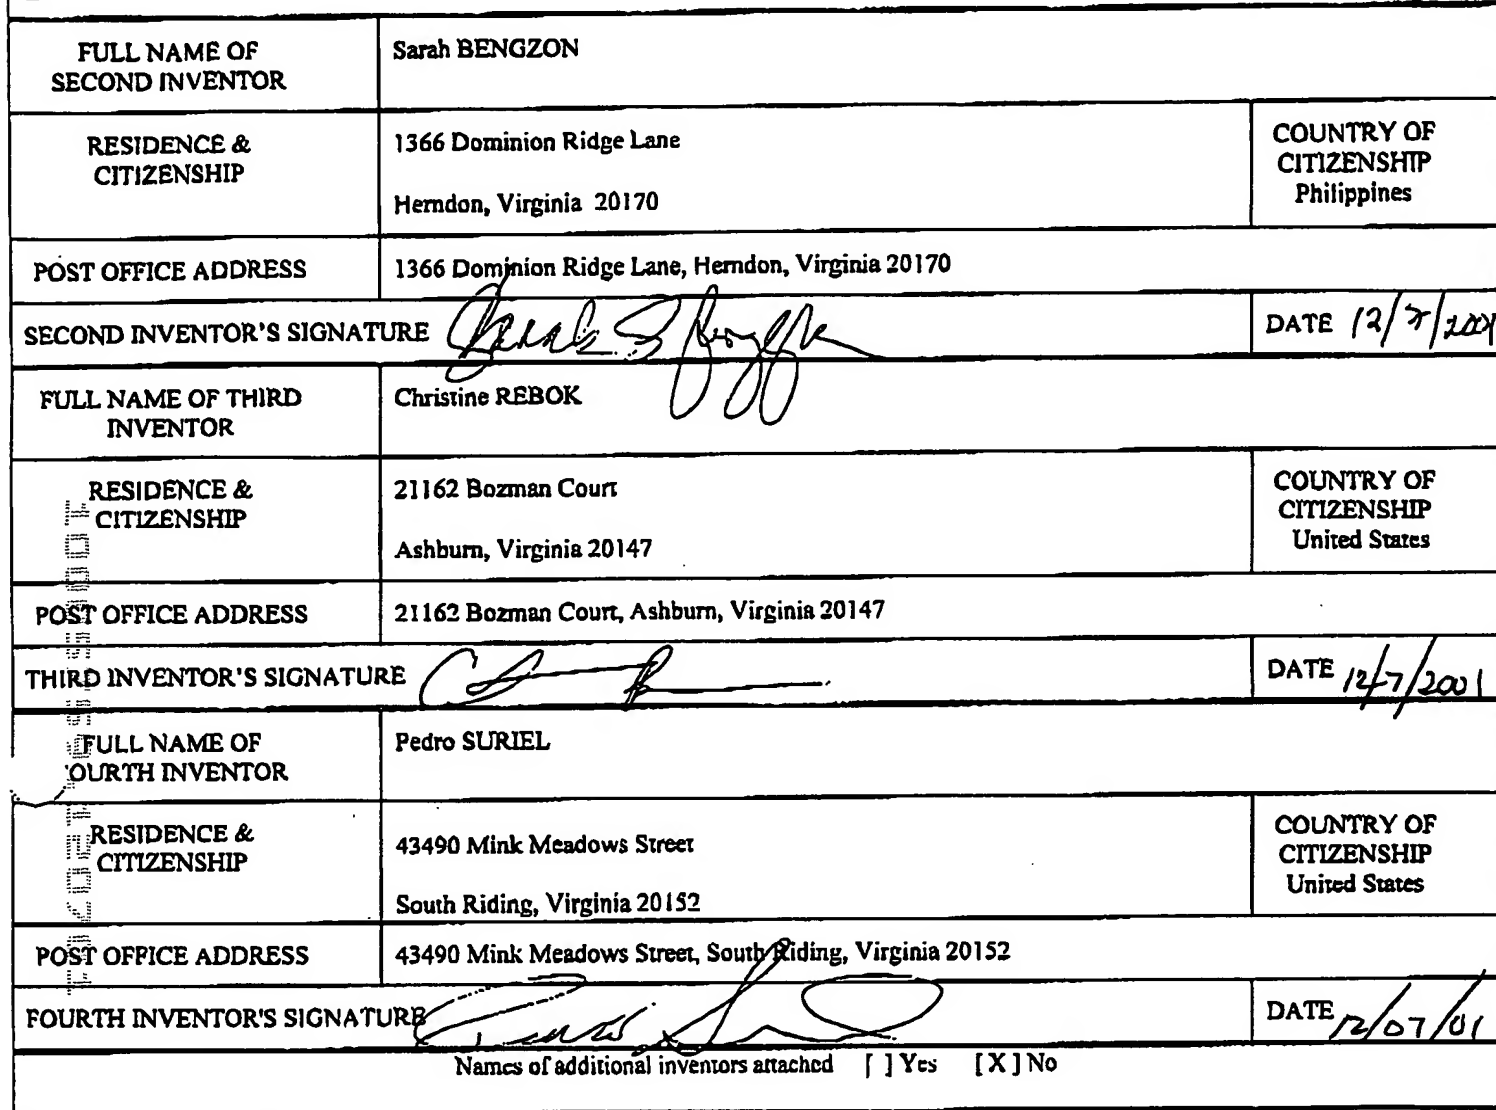 FULL NAME OF
SECOND INVENTOR
Sarah BENGZON
RESIDENCE &
CITIZENSHIP
1366 Dominion Ridge Lane
Herndon, Virginia 20170
COUNTRY OF
CITIZENSHIP
Philippines
POST OFFICE ADDRESS
1366 Dominion Ridge Lane, Herndon, Virginia 20170
SECOND INVENTOR'S SIGNATURE
DATE 12/7/2001
FULL NAME OF THIRD
INVENTOR
Christine REBOK
RESIDENCE &
CITIZENSHIP
21162 Bozman Court
Ashburn, Virginia 20147
COUNTRY OF
CITIZENSHIP
United States
POST OFFICE ADDRESS
21162 Bozman Court, Ashburn, Virginia 20147
THIRD INVENTOR'S SIGNATURE
DATE 12/7/2001
FULL NAME OF
OURTH INVENTOR
Pedro SURIEL
RESIDENCE &
CITIZENSHIP
43490 Mink Meadows Street
South Riding, Virginia 20152
COUNTRY OF
CITIZENSHIP
United States
POST OFFICE ADDRESS
43490 Mink Meadows Street, South Riding, Virginia 20152
FOURTH INVENTOR'S SIGNATURE
DATE 12/07/01
Names of additional inventors attached [ ] Yes [X] No